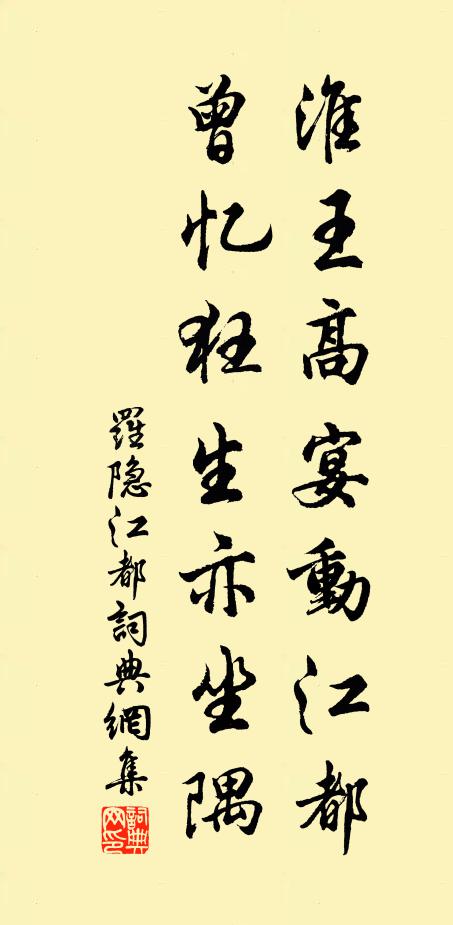 淮王高宴動江都
曾忆狂生亦坐隅
羅隐江都詞典網集
詞典网印